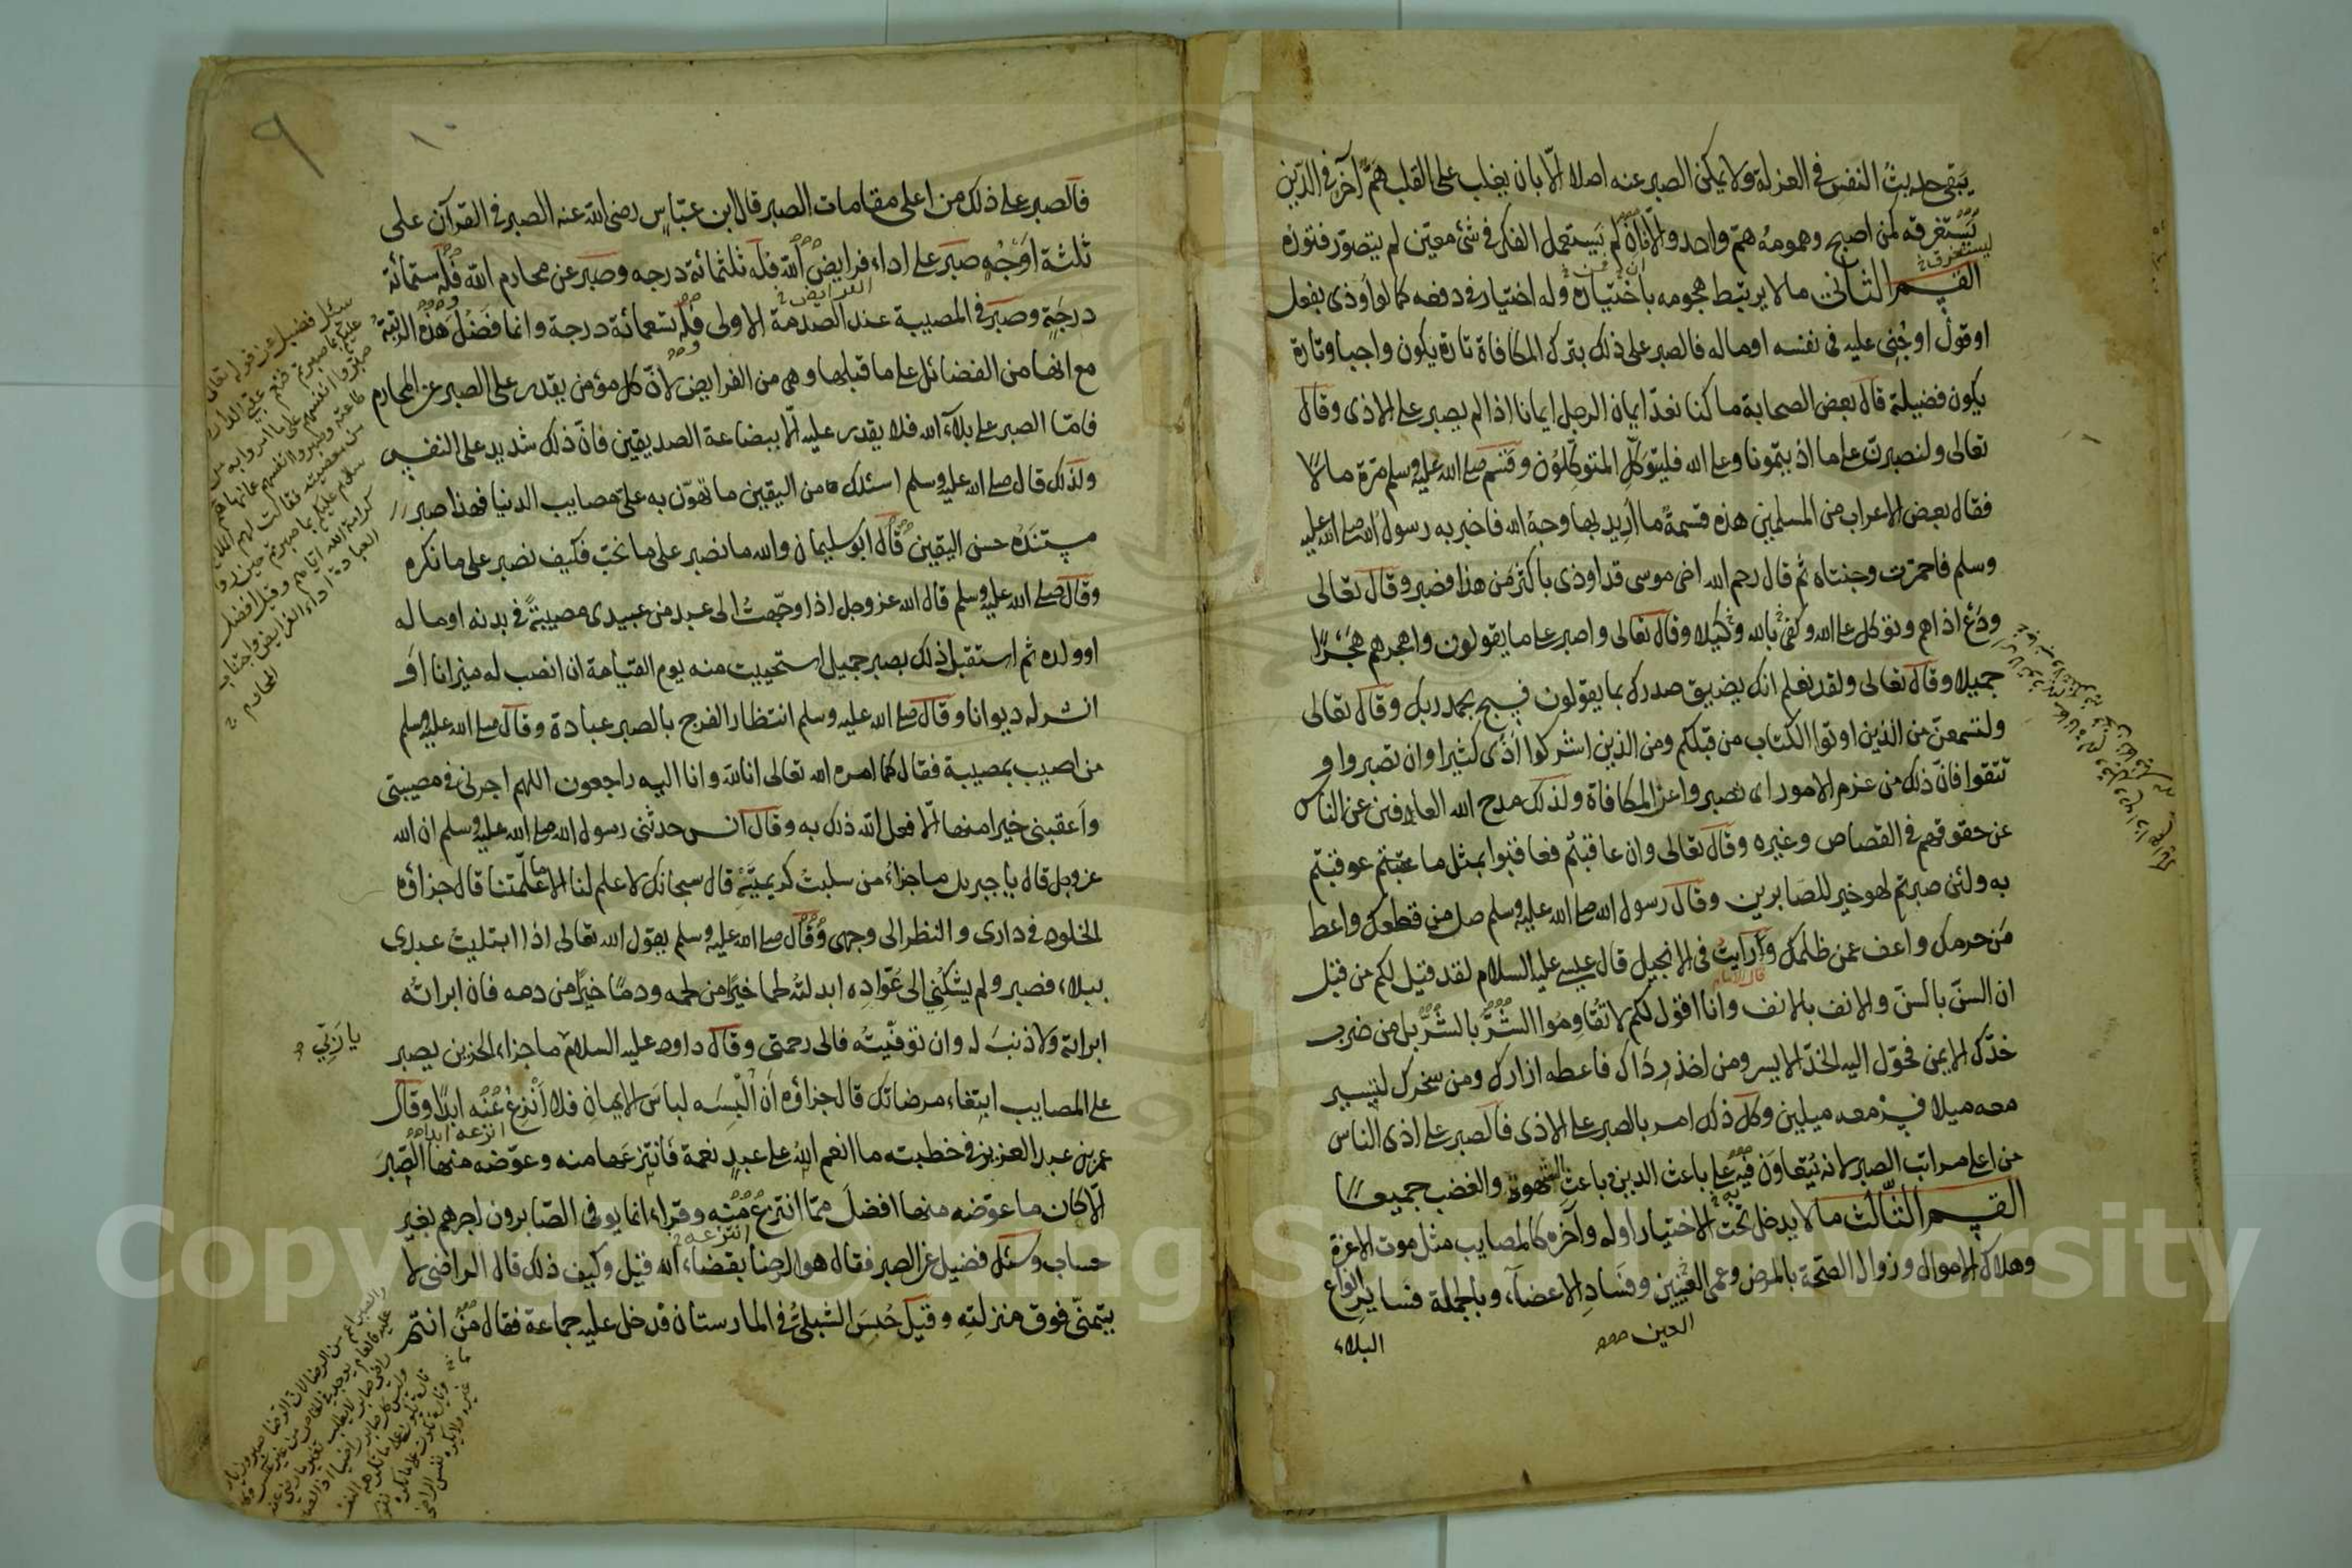 يبقى حديث النفس في العزلة ولا يمكن الصبر عنه اصلا الّا بان يغلب على القلب همّ آخر في الدّين
يستغرقه كمن اصبح وهمومه همّ واحد والّا فان لم يستعمل الفكر في شئ معيّن لم يتصوّر فتوره
القسم الثاني ما لا يرتبط هجومه باختياره وله اختيار في دفعه كما لو أوذى بفعل
او قول او جُنِي عليه في نفسه او ماله فالصبر على ذلك بترك المكافاة تارة يكون واجبا وتارة
يكون فضيلة قال بعض الصحابة ما كنا نعدّ ايمان الرجل ايمانا اذا لم يصبر على الاذى وقال
تعالى ولنصبرنّ على ما اذيتمونا وعلى الله فليتوكّل المتوكّلون وقسم صلى الله عليه وسلم مرّة مالا
فقال بعض الاعراب من المسلمين هذه قسمة ما اُرِيد بها وجه الله فاخبر به رسول الله صلى الله عليه
وسلم فاحمرّت وجنتاه ثم قال رحم الله اخى موسى قد اوذى باكثر من هذا فصبر وقال تعالى
ودَعْ اذاهم وتوكل على الله وكفى بالله وكيلا وقال تعالى واصبر على ما يقولون واهجرهم هَجْرًا
جميلا وقال تعالى ولقد نعلم انك يضيق صدرك بما يقولون فسبح بحمد ربك وقال تعالى
ولتسمعنّ من الذين اوتوا الكتاب من قبلكم ومن الذين اشركوا اذًى كثيرا وان تصبروا و
تتقوا فانّ ذلك من عزم الامور اى تصبروا عن المكافاة ولذلك مدح الله العافين عن الناس
عن حقوقهم في القصاص وغيره وقال تعالى وان عاقبتم فعاقبوا بمثل ما عوقبتم
به ولئن صبرتم لهو خير للصابرين وقال رسول الله صلى الله عليه وسلم صل من قطعك واعط
مَن حرمك واعف عمن ظلمك ورأيت في الانجيل قال عيسى عليه السلام لقد قيل لكم من قبل
قال الامام
ان السنّ بالسنّ والانف بالانف وانا اقول لكم لا تقاوموا الشرّ بالشرّ بل من ضرب
خدّك الايمن فحوّل اليه الخدّ الايسر ومن اخذ رداك فاعطه ازارك ومن سخرك لتسير
معه ميلا فسِرْ معه ميلين وكلّ ذلك امر بالصبر على الاذى فالصبر على اذى الناس
من اعلى مراتب الصبر لانه يتعاون فيه على باعث الدين باعث الشهوة والغضب جميعا
القسم الثّالث ما لا يدخل تحت الاختيار اوله وآخره كالمصايب مثل موت الاعزة
وهلاك الاموال وزوال الصحّة بالمرض وعمى العينين وفساد الاعضآء وبالجملة فساير انواع
العين
البلاء
٩
١٠
فالصبر على ذلك من اعلى مقامات الصبر قال ابن عبّاس رضى الله عنه الصبر في القرآن على
ثلثة اوجُه صبر على اداء فرايض الله فله ثلثمائة درجه وصبر عن محارم الله فله ستمائة
الفرايض
درجة وصبر في المصيبة عند الصدمة الاولى فله تسعمائة درجة وانما فضل هذه الرتبة
مع انها من الفضائل على ما قبلها وهى من الفرايض لانّ كل مؤمن يقدر على الصبر عن المحارم
فامّا الصبر على بلآء الله فلا يقدر عليه الّا ببضاعة الصديقين فانّ ذلك شديد على النفس
ولذلك قال صلى الله عليه وسلم اسئلك من اليقين ما تهوّن به علىّ مصايب الدنيا فهذا صبر
مستنَدُه حسن اليقين قال ابو سليمان والله ما نصبر على ما نحب فكيف نصبر على ما نكره
وقال صلى الله عليه وسلم قال الله عز وجل اذا وجّهتُ الى عبد من عبيدى مصيبةً في بدنه او ماله
او ولده ثم استقبل ذلك بصبر جميل استحييت منه يوم القيامة ان انصب له ميزانا او
انشر له ديوانا وقال صلى الله عليه وسلم انتظار الفرج بالصبر عبادة وقال صلى الله عليه وسلم
من اصيب بمصيبة فقال كما امره الله تعالى انا لله وانا اليه راجعون اللهم اجرنى في مصيبتى
واَعقبنى خيرا منها الّا فعل الله ذلك به وقال انس حدثنى رسول الله صلى الله عليه وسلم ان الله
عز وجل قال يا جبريل ما جزاء من سلبتُ كريمتيه قال سبحانك لا علم لنا الا ما علّمتنا قال جزاؤه
الخلود في دارى والنظر الى وجهى وقال صلى الله عليه وسلم يقول الله تعالى اذا ابتليت عبدى
ببلاء فصبر ولم يشكُنِي الى عوّاده ابدلته لحما خيرًا من لحمه ودمًا خيرًا من دمه فان ابراته
ابراته ولا ذنبَ له وان توفّيتُه فالى رحمتى وقال داود عليه السلام ما جزاء الحزين يصبر
يا ربّي
على المصايب ابتغاء مرضاتك قال جزاؤه اَن اُلْبِسَه لباسَ الايمان فلا اَنْزِعُ عنه ابدًا وقال
انزعه ابدا
عمر بن عبد العزيز في خطبته ما انعم الله على عبدٍ نعمة فانتزعها منه وعوّضه منها الصّبرَ
الّا كان ما عوّضه منها افضلَ ممّا انتزع منه وقراء انما يوفى الصّابرون اجرهم بغير
انتزعه
حساب وسئل فضيل عن الصبر فقال هو الرضا بقضاء الله قيل وكيف ذلك قال الراضى لا
يتمنّى فوق منزلته وقيل حُبِسَ الشبلىُّ في المارستان فدخل عليه جماعة فقال مَنْ انتم